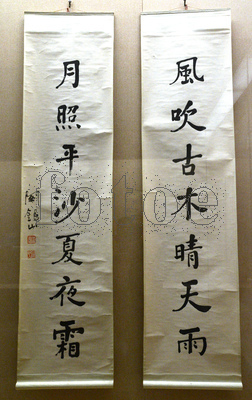 風吹古木晴天雨
月照平沙夏夜霜
fotoe